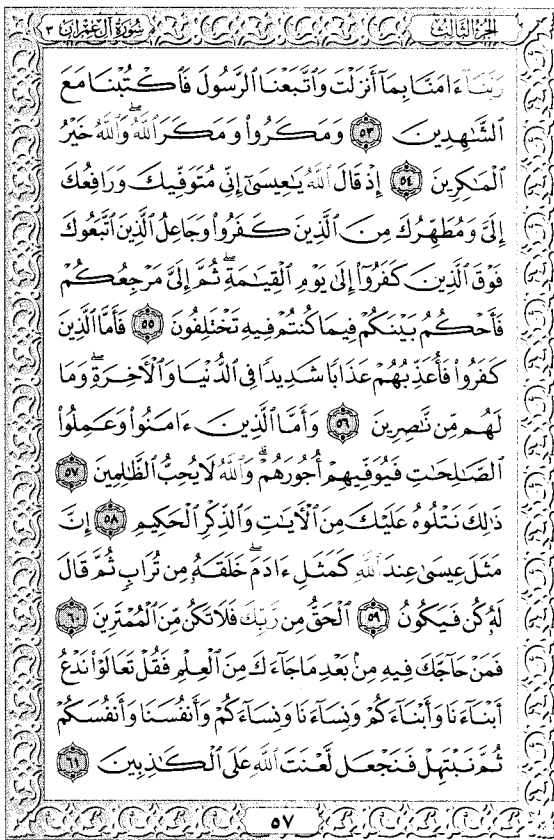 سُورَةُ آلِ عِمْرَانَ ٣
الجُزْءُ الثَّالِثُ
رَبَّنَآ ءَامَنَّا بِمَآ أَنزَلْتَ وَٱتَّبَعْنَا ٱلرَّسُولَ فَٱكْتُبْنَا مَعَ
ٱلشَّٰهِدِينَ ٥٣ وَمَكَرُوا۟ وَمَكَرَ ٱللَّهُ ۖ وَٱللَّهُ خَيْرُ
ٱلْمَٰكِرِينَ ٥٤ إِذْ قَالَ ٱللَّهُ يَٰعِيسَىٰٓ إِنِّى مُتَوَفِّيكَ وَرَافِعُكَ
إِلَىَّ وَمُطَهِّرُكَ مِنَ ٱلَّذِينَ كَفَرُوا۟ وَجَاعِلُ ٱلَّذِينَ ٱتَّبَعُوكَ
فَوْقَ ٱلَّذِينَ كَفَرُوٓا۟ إِلَىٰ يَوْمِ ٱلْقِيَٰمَةِ ۖ ثُمَّ إِلَىَّ مَرْجِعُكُمْ
فَأَحْكُمُ بَيْنَكُمْ فِيمَا كُنتُمْ فِيهِ تَخْتَلِفُونَ ٥٥ فَأَمَّا ٱلَّذِينَ
كَفَرُوا۟ فَأُعَذِّبُهُمْ عَذَابًا شَدِيدًا فِى ٱلدُّنْيَا وَٱلْءَاخِرَةِ ۖ وَمَا
لَهُم مِّن نَّٰصِرِينَ ٥٦ وَأَمَّا ٱلَّذِينَ ءَامَنُوا۟ وَعَمِلُوا۟
ٱلصَّٰلِحَٰتِ فَيُوَفِّيهِمْ أُجُورَهُمْ ۗ وَٱللَّهُ لَا يُحِبُّ ٱلظَّٰلِمِينَ ٥٧
ذَٰلِكَ نَتْلُوهُ عَلَيْكَ مِنَ ٱلْءَايَٰتِ وَٱلذِّكْرِ ٱلْحَكِيمِ ٥٨ إِنَّ
مَثَلَ عِيسَىٰ عِندَ ٱللَّهِ كَمَثَلِ ءَادَمَ ۖ خَلَقَهُۥ مِن تُرَابٍ ثُمَّ قَالَ
لَهُۥ كُن فَيَكُونُ ٥٩ ٱلْحَقُّ مِن رَّبِّكَ فَلَا تَكُن مِّنَ ٱلْمُمْتَرِينَ ٦٠
فَمَنْ حَآجَّكَ فِيهِ مِنۢ بَعْدِ مَا جَآءَكَ مِنَ ٱلْعِلْمِ فَقُلْ تَعَالَوْا۟ نَدْعُ
أَبْنَآءَنَا وَأَبْنَآءَكُمْ وَنِسَآءَنَا وَنِسَآءَكُمْ وَأَنفُسَنَا وَأَنفُسَكُمْ
ثُمَّ نَبْتَهِلْ فَنَجْعَل لَّعْنَتَ ٱللَّهِ عَلَى ٱلْكَٰذِبِينَ ٦١
٥٧